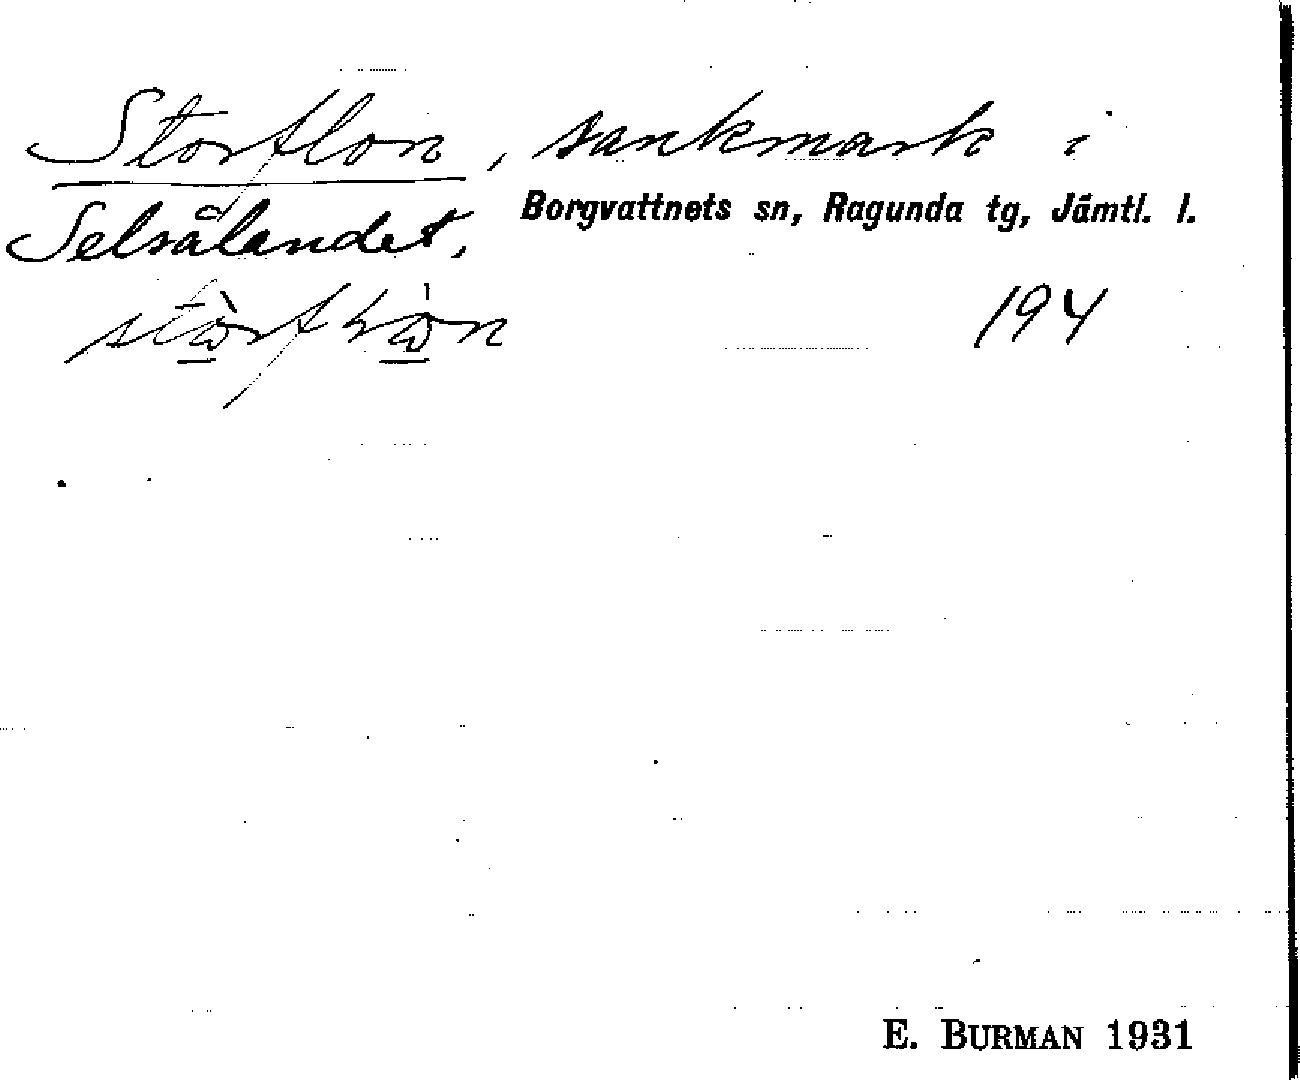 Storflon, sankmark i
Selsålandet, Borgvattnets sn, Ragunda tg, Jämtl. l.
194
E. BURMAN 1931